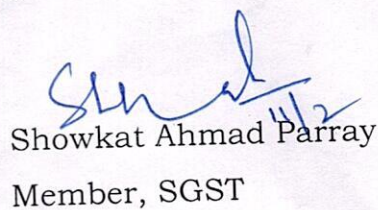 11/2
Showkat Ahmad Parray
Member, SGST